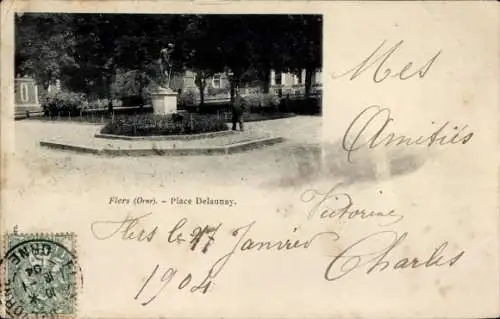 Mes
Amitiés
Flers (Orne). - Place Delaunay.
Victorine
Charles
Flers le 17 Janvier
1904
ORNE
04